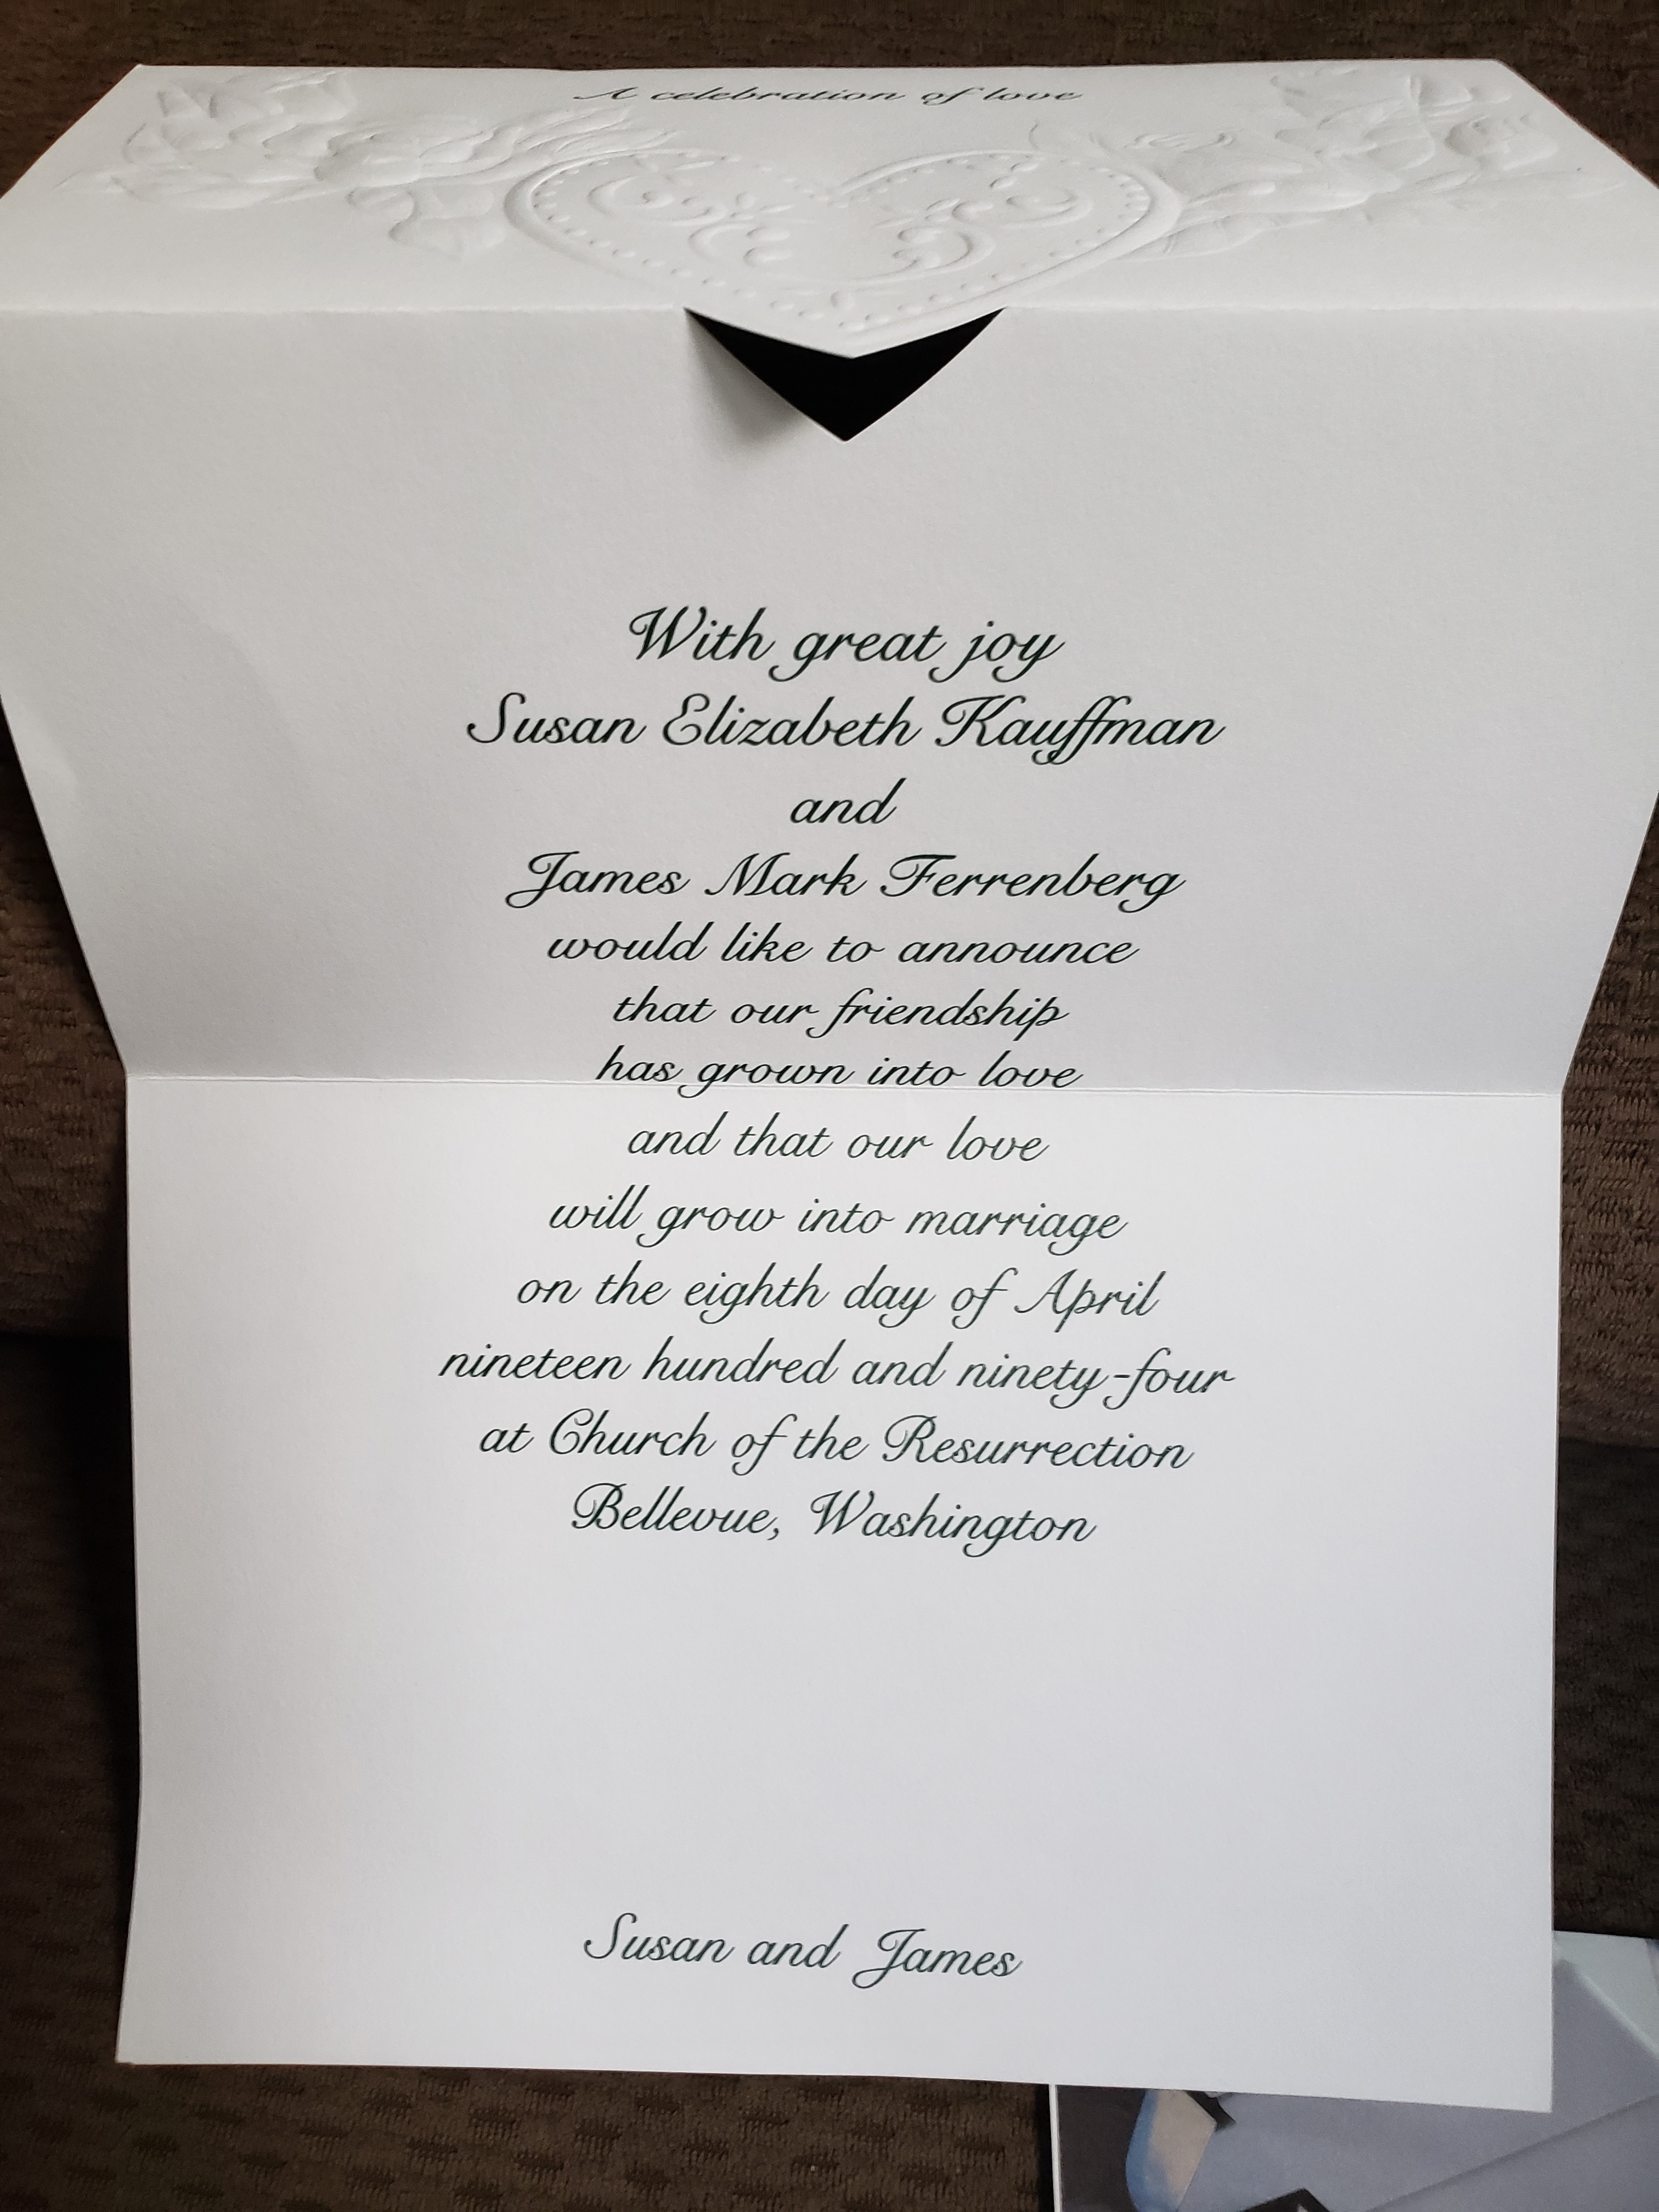 A celebration of love
With great joy
Susan Elizabeth Kauffman
and
James Mark Ferrenberg
would like to announce
that our friendship
has grown into love
and that our love
will grow into marriage
on the eighth day of April
nineteen hundred and ninety-four
at Church of the Resurrection
Bellevue, Washington
Susan and James